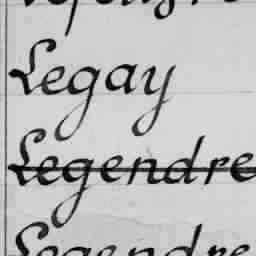 Legay
Legendre
Legendre